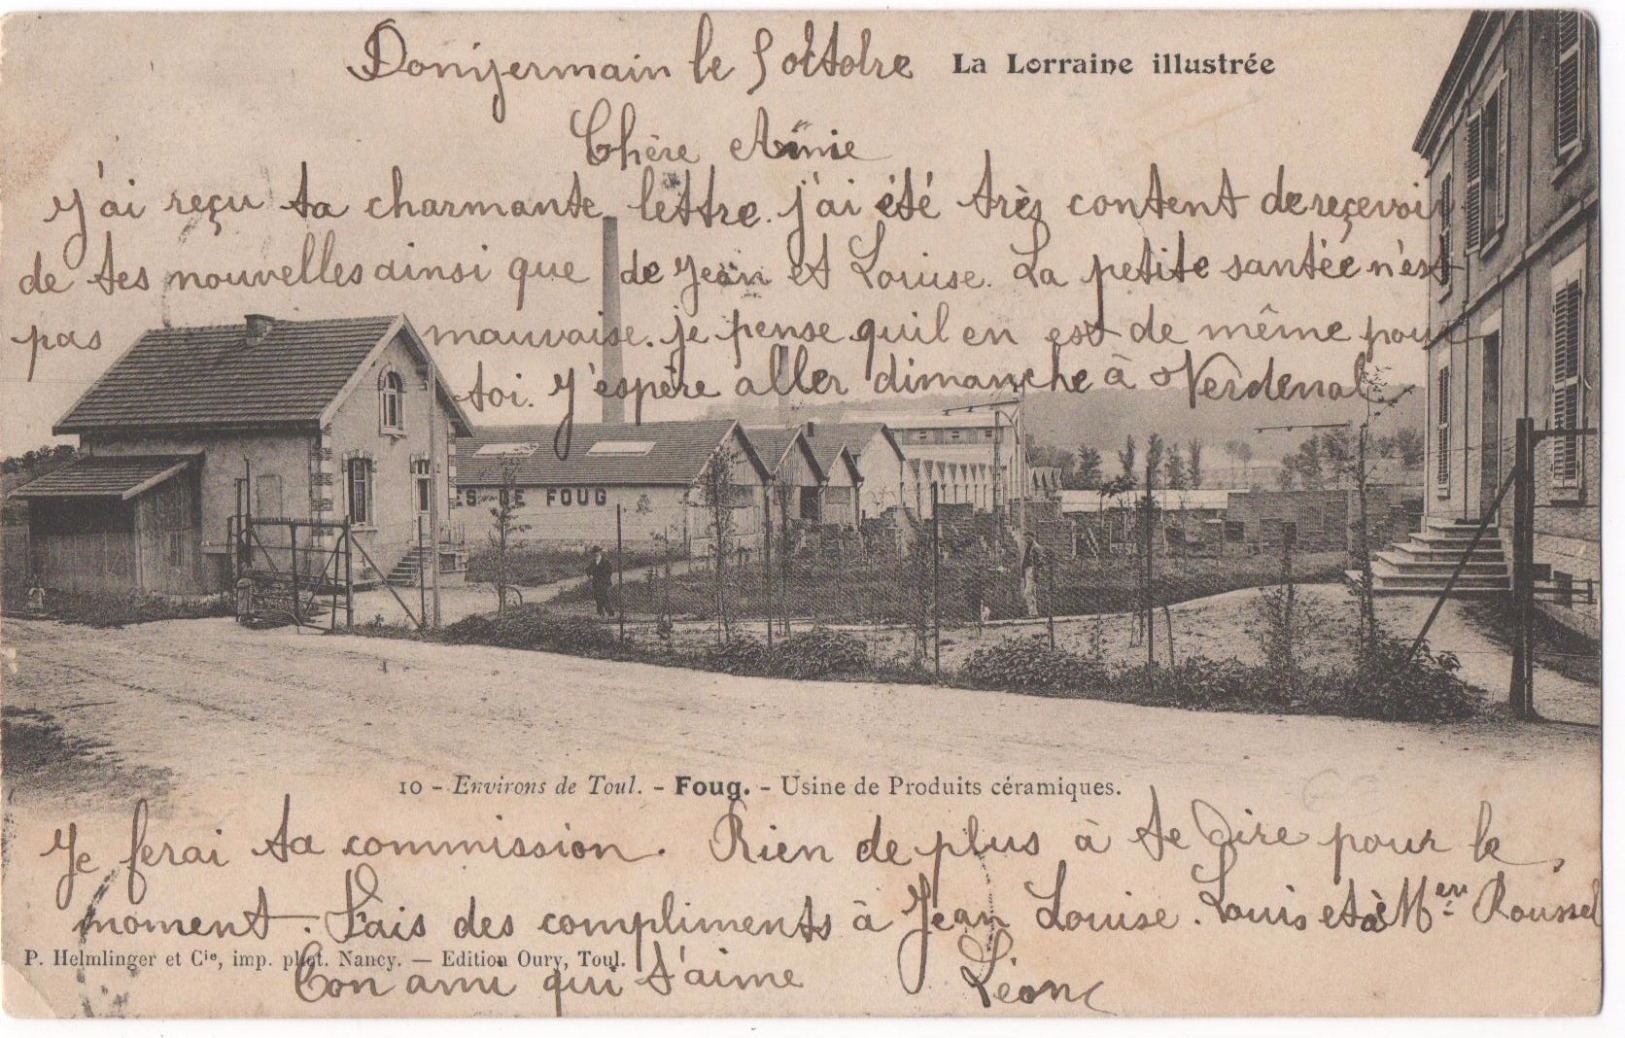 Donjermain le 5 octobre
La Lorraine illustrée
Chère Amie
J'ai reçu ta charmante lettre. j'ai été très content de reçevoir
de tes nouvelles ainsi que de Jean et Louise. La petite santée n'est
pas mauvaise. je pense quil en est de même pour
toi. J'espère aller dimanche à Verdenal
ES DE FOUG
10 - Environs de Toul. - Foug. - Usine de Produits céramiques.
Je ferai ta commission. Rien de plus à te dire pour le
moment. Fais des compliments à Jean Louise. Louis et à M en Roussel
P. Helmlinger et Cie, imp. phot. Nancy. — Edition Oury, Toul.
Ton ami qui t'aime Léon